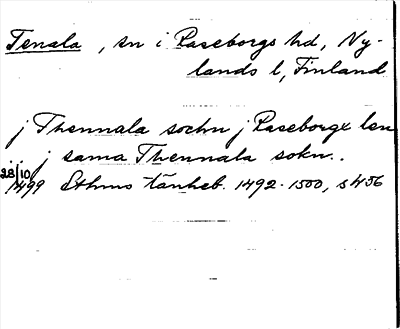 Tenala, sn i Raseborgs hd, Ny-
lands l, Finland
j Thennala sochn j Raseborgx len
j sama Thennala sokn..
28/10 1499 Sthms tänkeb. 1492-1500, s 456